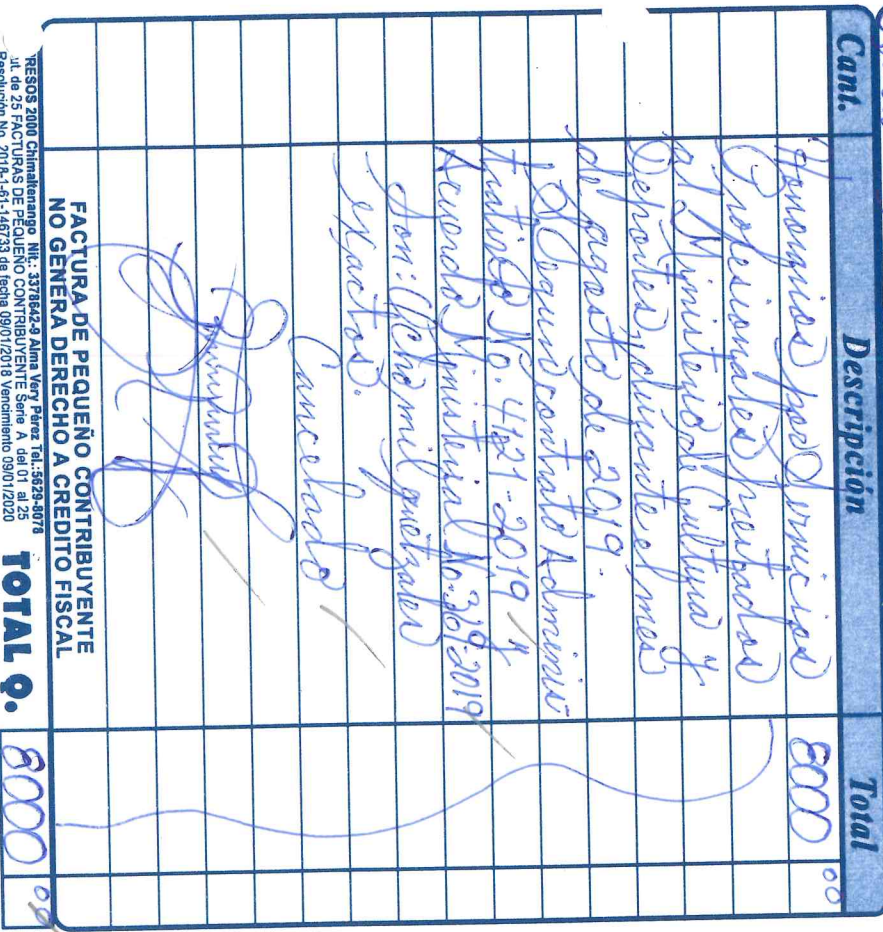 Cant. Descripción Total
Honorarios por Servicios 8000 00
Profesionales prestados
al Ministerio de Cultura y
Deportes, durante el mes
de agosto de 2019.
Según contrato Adminis
trativo No. 4121-2019 y
Acuerdo Ministerial No. 369-2019
Son: Ocho mil quetzales
exactos.
Cancelado
FACTURA DE PEQUEÑO CONTRIBUYENTE
NO GENERA DERECHO A CREDITO FISCAL
RESOS 2000 Chimaltenango Nit.: 3378642-9 Alma Very Pérez Tel.:5629-8078
ut. de 25 FACTURAS DE PEQUEÑO CONTRIBUYENTE Serie A del 01 al 25
Resolución No. 2018-1-61-146733 de fecha 09/01/2018 Vencimiento 09/01/2020
TOTAL Q. 8000 00